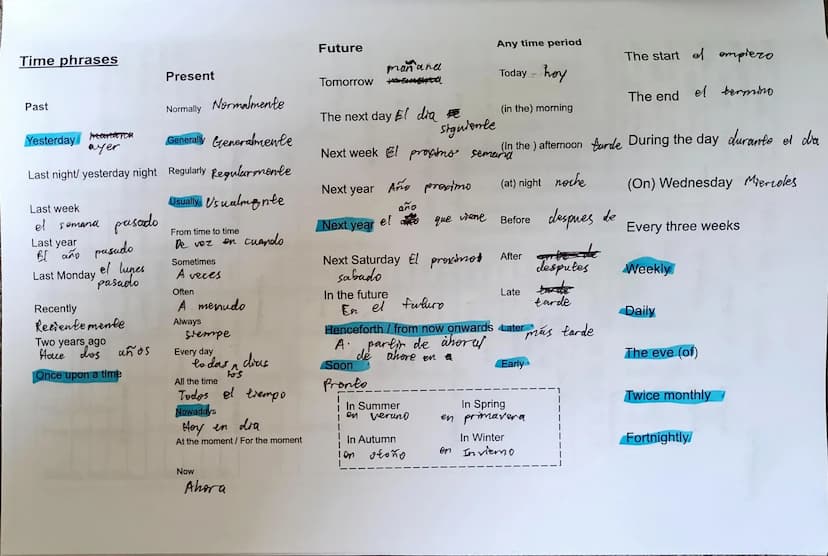 Time phrases
Past
Yesterday
ayer
Last night/ yesterday night
Last week
el semana pasado
Last year
El año pasado
Last Monday el lunes
pasado
Recently
Recientemente
Two years ago
Hace dos años
Once upon a time
Present
Normally Normalmente
Generally Generalmente
Regularly Regularmente
Usually Usualmente
From time to time
De voz en cuando
Sometimes
A veces
Often
A menudo
Always
siempe
Every day
todas los dias
All the time
Todos el tiempo
Nowadays
Hoy en dia
At the moment / For the moment
Now
Ahora
Future
mañana
Tomorrow
The next day El dia
siguiente
Next week El proximo semana
Next year Año proximo
año
Next year el que viene
Next Saturday El proximo
sabado
In the future
En el futuro
Henceforth / from now onwards
A partir de ahora/
de ahore en a
Soon
Pronto
In Summer
en verano
In Spring
en primavera
In Autumn
en otoño
In Winter
en Invierno
Any time period
Today hoy
(in the) morning
(In the ) afternoon tarde
(at) night noche
Before despues de
After
despues
Late
tarde
Later más tarde
Early
The start el empiezo
The end el termino
During the day durante el dia
(On) Wednesday Miercoles
Every three weeks
Weekly
Daily
The eve (of)
Twice monthly
Fortnightly